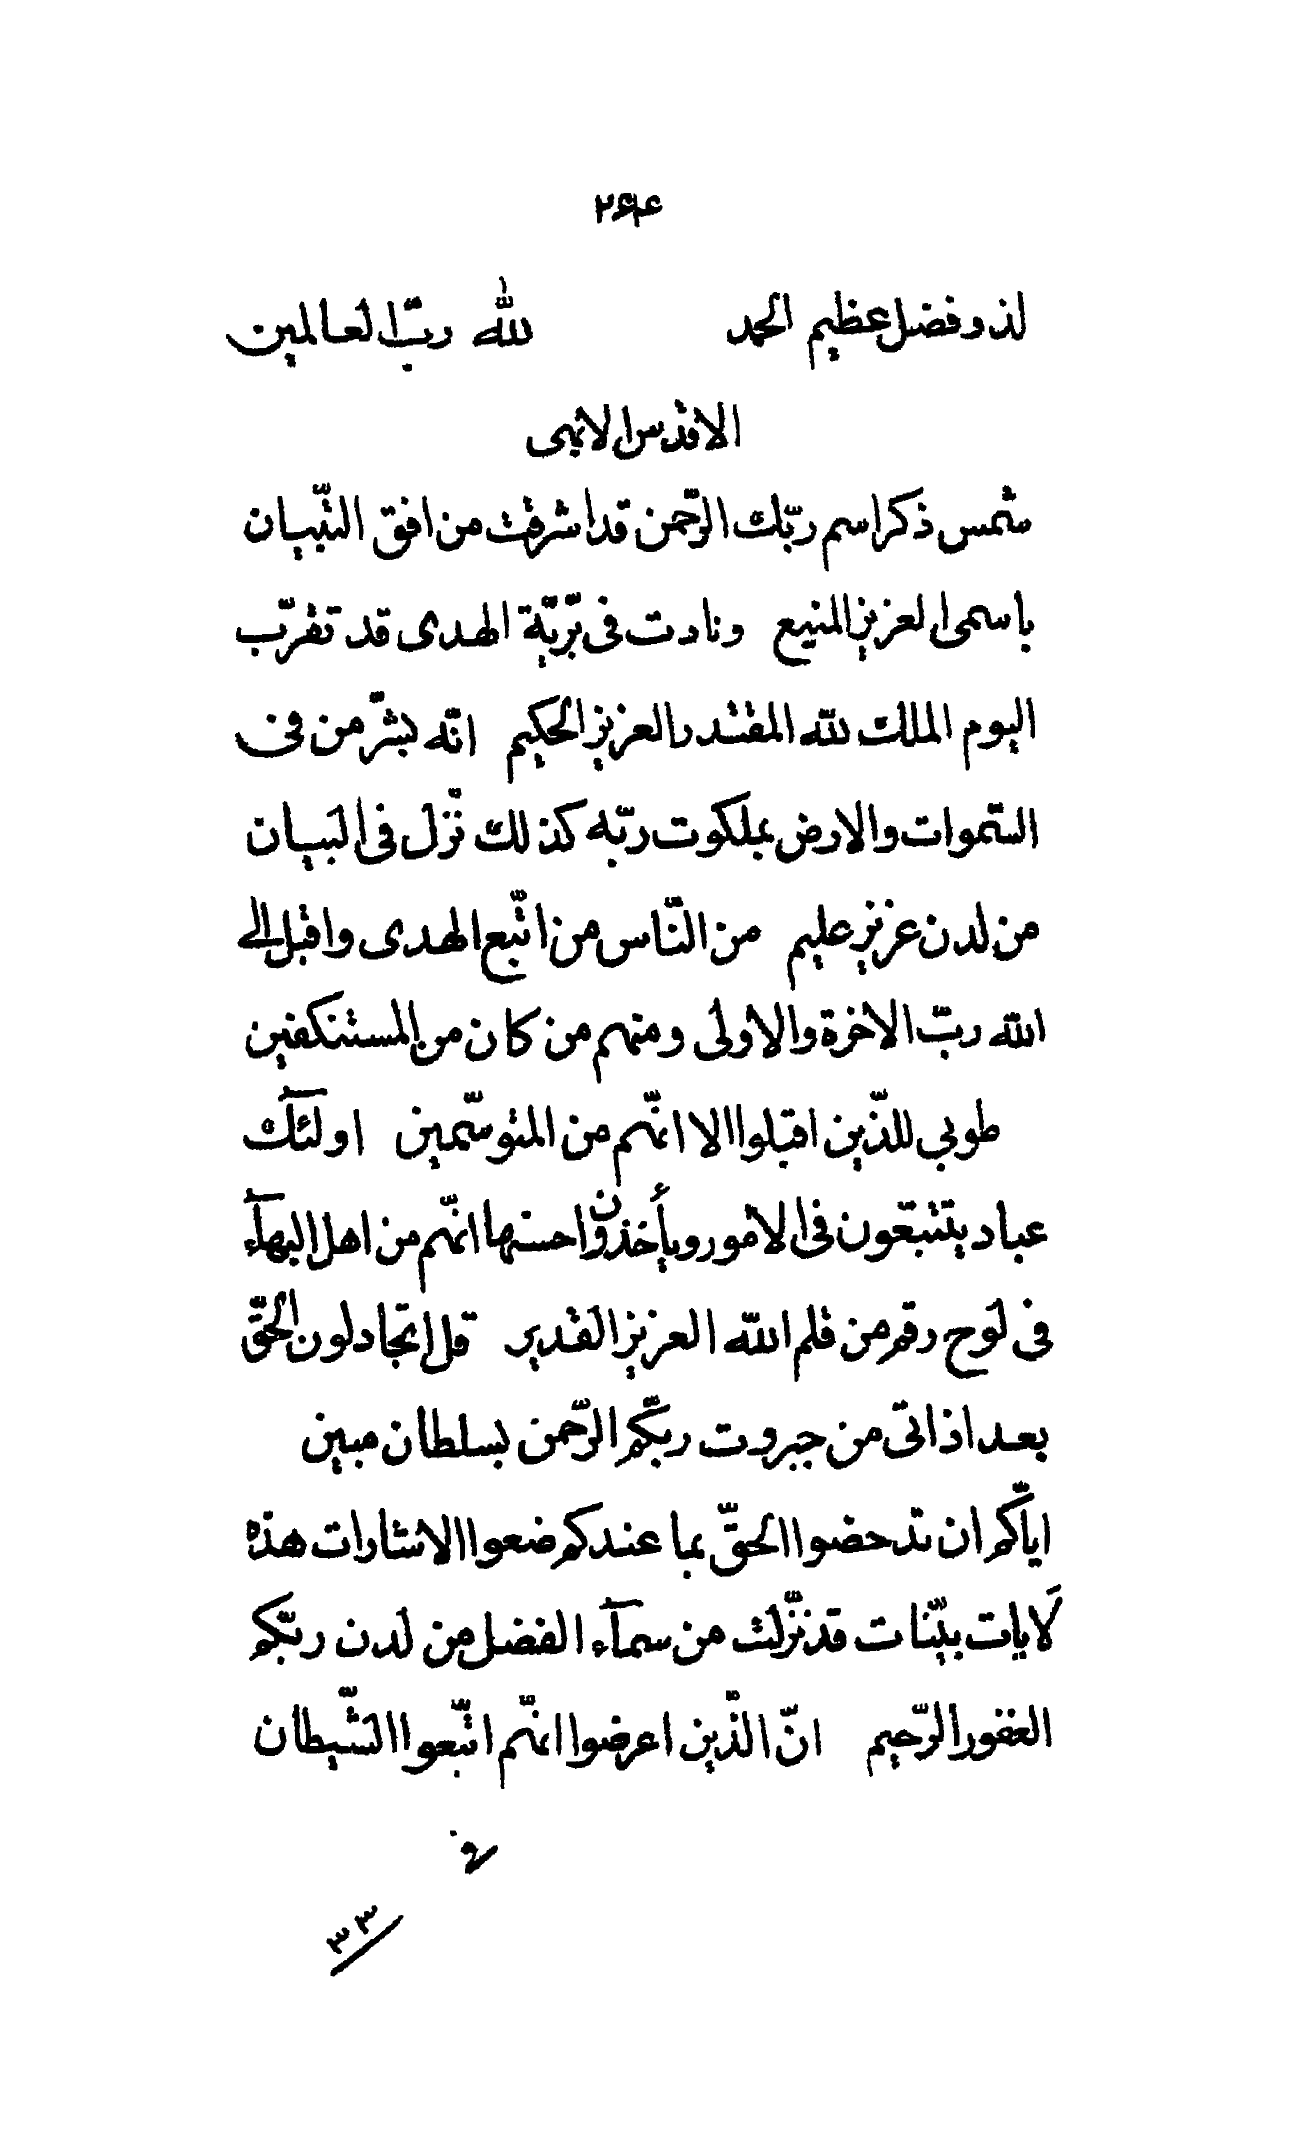 ۲۶۴
لذو فضل عظیم الحمد لله ربّ العالمین
الاقدس الابهی
شمس ذکر اسم ربّک الرّحمن قد اشرقت من افق التّبیان
باسمی العزیز المنیع و نادت فی برّیّة الهدی قد تقرّب
الیوم الملک لله المقتدر العزیز الحکیم انّه بشّر من فی
السّموات والارض بملکوت ربّه کذلک نزّل فی البیان
من لدن عزیز علیم من النّاس من اتّبع الهدی واقبل الی
الله ربّ الاخرة والاولی ومنهم من کان من المستنکفین
طوبی للّذین اقبلوا الا انّهم من المتوسّمین اولئک
عباد یتتبّعون فی الامور ویأخذون احسنها انّهم من اهل البهآء
فی لوح رقم من قلم الله العزیز القدیر قل اتجادلون الحقّ
بعد اذ اتی من جبروت ربّکم الرّحمن بسلطان مبین
ایّاکم ان تدحضوا الحقّ بما عندکم ضعوا الاشارات هذه
لایات بیّنات قد نزّلت من سمآء الفضل من لدن ربّکم
الغفور الرّحیم انّ الّذین اعرضوا انّهم اتّبعوا الشّیطان
و
۳۳